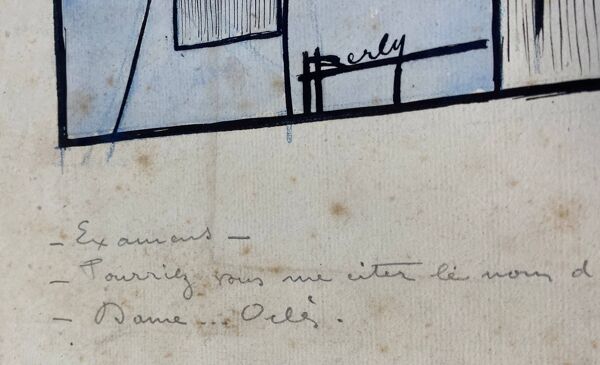 Berly
- Examens -
- Pourriez vous me citer le nom d
- Dame... Oclès.